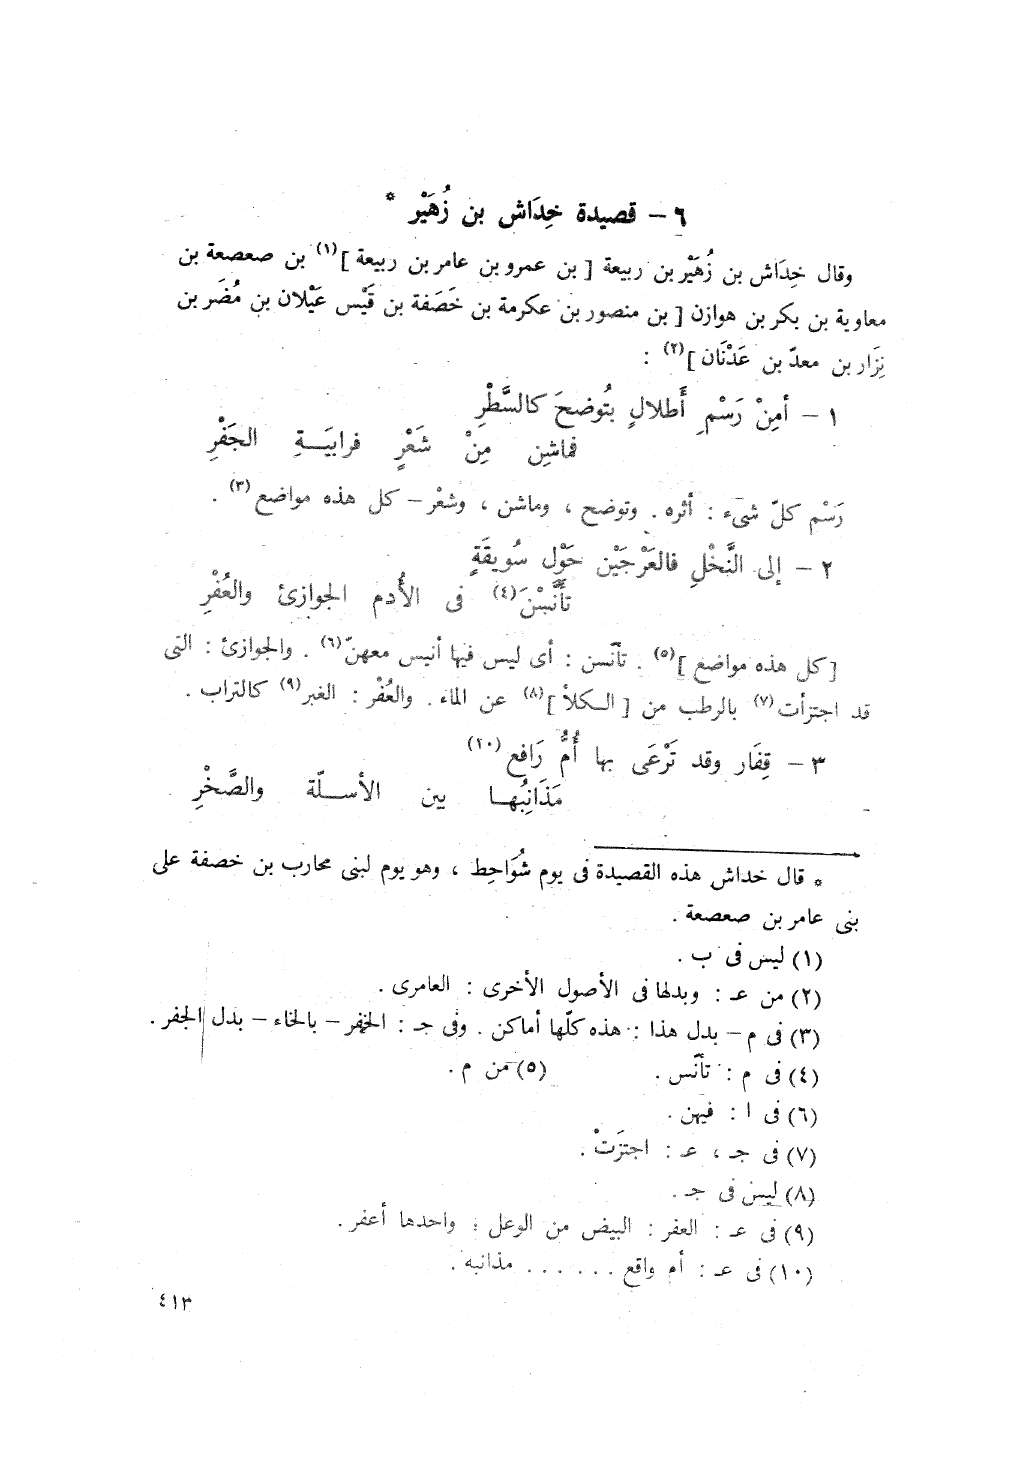 ٦ – قصيدة خِدَاش بن زُهَيْر *
وقال خِدَاش بن زُهَيْر بن ربيعة [ بن عمرو بن عامر بن ربيعة ](١) بن صعصعة بن
معاوية بن بكر بن هوازن [ بن منصور بن عكرمة بن خَصَفة بن قَيْس عَيْلان بن مُضَر بن
نِزَار بن معدّ بن عَدْنَان ](٢) :
١ – أمِنْ رَسْمِ أَطلالٍ بتُوضحَ كالسَّطْرِ
فماشِن مِنْ شَعْرٍ فرابيَـــةِ الجَفْرِ
رَسْم كلّ شىء : أثره . وتوضح ، وماشن ، وشعْر – كل هذه مواضع(٣) .
٢ – إلى النَّخْلِ فالعَرْجَيْن حَوْل سُويقَةٍ
تأَنَّسْنَ(٤) فى الأُدم الجوازئ والعُفْرِ
[ كل هذه مواضع ](٥) . تأنّسن : أى ليس فيها أنيس معهنّ(٦) . والجوازئ : التى
قد اجتزأت(٧) بالرطب من [ الـكلأ ](٨) عن الماء . والعُفْر : الغبر(٩) كالتراب .
٣ – قِفَار وقد تَرْعَى بها أُمُّ رَافع(١٠)
مَذَانِبُهـا بين الأسـلّة والصَّخْرِ
* قال خداش هذه القصيدة فى يوم شُوَاحِط ، وهو يوم لبنى محارب بن خصفة على
بنى عامر بن صعصعة .
(١) ليس فى ب .
(٢) من عـ : وبدلها فى الأصول الأخرى : العامرى .
(٣) فى م – بدل هذا : هذه كلّها أماكن . وفى جـ : الخفر – بالخاء – بدل الجفر .
(٤) فى م : تأنّس . (٥) من م .
(٦) فى ا : فيهن .
(٧) فى جـ ، عـ : اجتزَتْ .
(٨) ليس فى جـ .
(٩) فى عـ : العفر : البيض من الوعل ؛ واحدها أعفر .
(١٠) فى عـ : أم واقع . . . . . . مذانبه .
٤١٣